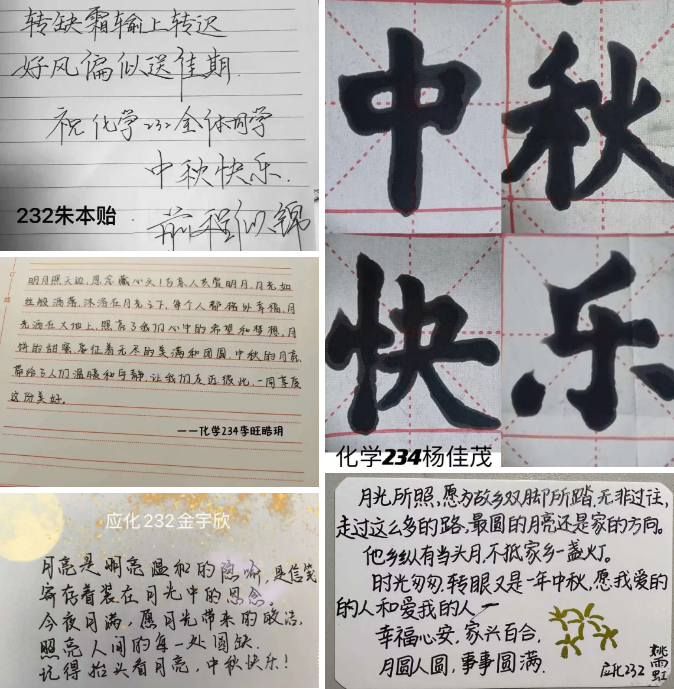 转缺霜输上转迟
好风偏似送佳期
祝化学232全体同学
中秋快乐.
前程似锦
232朱本贻
中秋
快乐
化学234杨佳茂
明月照天边,思念藏心头!万家人共赏明月,月光如
丝般洒落,沐浴在月光之下,每个人都格外幸福,月
光洒在大地上,照亮了我们心中的希望和梦想,月
饼的甜蜜寄住着无尽的美满和团圆,中秋的月亮,
带给了人们温暖和宁静,让我们友近彼此,一同享受
这份美好。
——化学234李旺皓玥
应化232金宇欣
月亮是明亮温和的隐喻,是信笺
寄存着装在月光中的思念。
今夜月满,愿月光带来的皎洁,
照亮人间的每一处圆缺.
记得抬头看月亮,中秋快乐!
月光所照,愿为故乡双脚所踏,无非过往,
走过这么多的路,最圆的月亮还是家的方向。
他乡纵有当头月,不抵家乡一盏灯。
时光匆匆,转眼又是一年中秋,愿我爱的
的人和爱我的人一
幸福心安,家兴百合,
月圆人圆,事事圆满.
应化232
姚雨虹